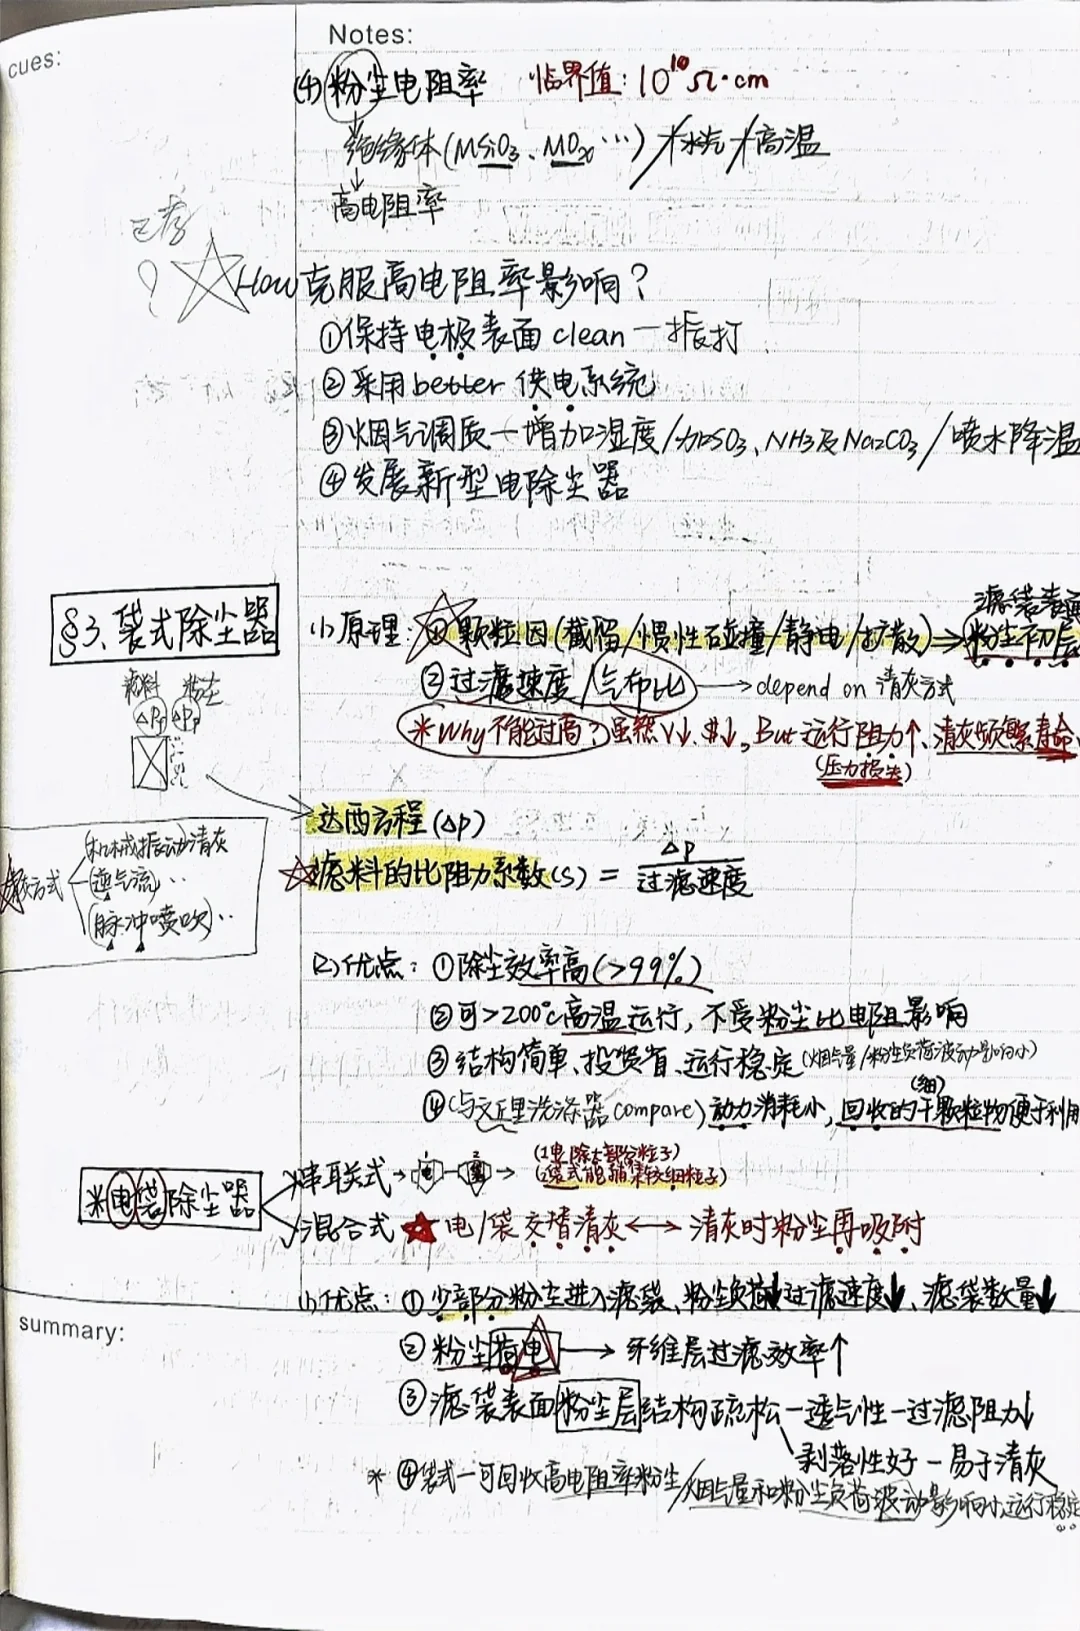 Notes:
cues:
(4) 粉尘电阻率 临界值: 10^10 Ω·cm
绝缘体(MSiO3、MOx…) / 水汽 / 高温
高电阻率
已考
?
How 克服高电阻率影响?
①保持电极表面 clean — 振打
②采用 better 供电系统
③烟气调质 — 增加湿度/加SO3、NH3及Na2CO3/喷水降温
④发展新型电除尘器
§3、袋式除尘器
滤袋表面
(1)原理: ①颗粒因(截留/惯性碰撞/静电/扩散)→粉尘初层
②过滤速度/气布比 → depend on 清灰方式
*Why不能过高? 虽然V↓、$↓, But 运行阻力↑、清灰频繁寿命
(压力损失)
滤料 粉尘
ΔPf ΔPp
达西方程(Δp)
滤料的比阻力系数(S) = Δp / 过滤速度
清灰方式
(机械振动)清灰
(逆气流)··
(脉冲喷吹)··
(2)优点: ①除尘效率高(>99%)
②可>200℃高温运行, 不受粉尘比电阻影响
③结构简单、投资省、运行稳定(烟气量/粉尘负荷波动影响小)
(细)
④(与文丘里洗涤器 compare) 动力消耗小, 回收的干颗粒物便于利用
※电袋除尘器
串联式 → 1 — 2 → (1电:除大部分粒子)
(2袋式能捕集较细粒子)
混合式 ★ 电/袋交替清灰 ↔ 清灰时粉尘再吸附
(1)优点: ①少部分粉尘进入滤袋、粉尘负荷↓过滤速度↓、滤袋数量↓
summary:
②粉尘荷电 → 纤维层过滤效率↑
③滤袋表面粉尘层结构疏松 — 透气性 — 过滤阻力↓
剥落性好 — 易于清灰
* ④袋式 — 可回收高电阻率粉尘/烟气量和粉尘负荷波动影响小运行稳定